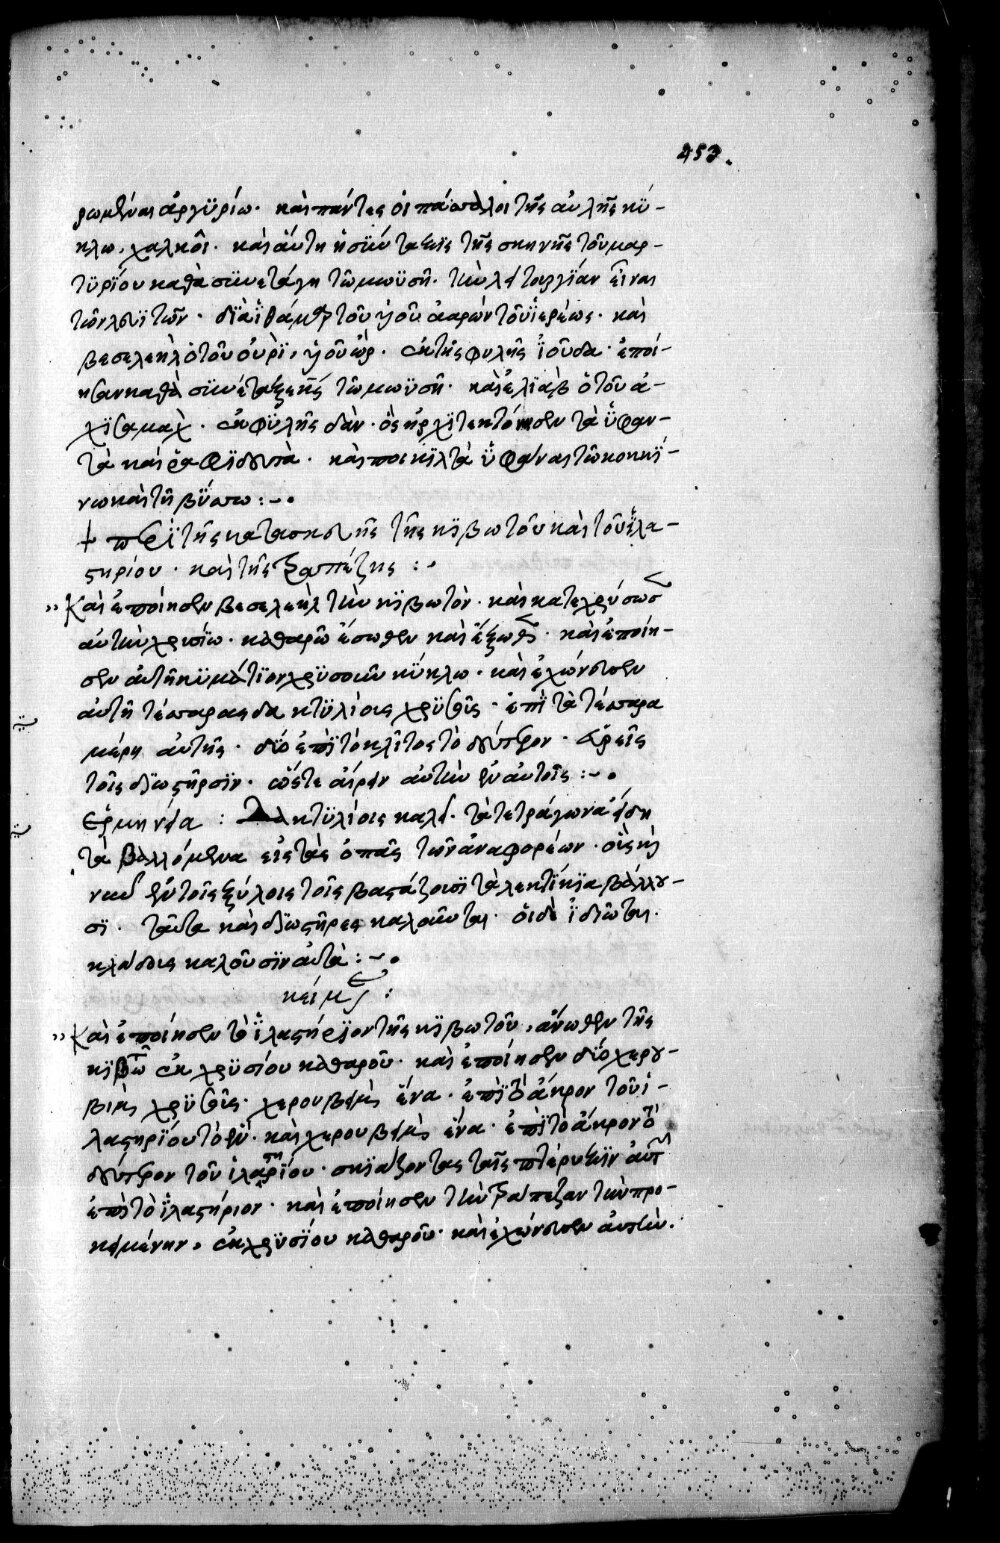 453.
ρωμέναι ἀργϋρίω· καὶ πάντες οἱ πάσσαλοι τῆς αὐλῆς κύ-
κλω, χαλκοῖ· καὶ ἄυτη ἡ σϋνταξϊς τῆς σκηνῆς τοῦ μαρ-
τϋρίου καθὰ σϋνετάγη τῶ μωϋσῆ· τὴν λειτουργίαν εἶναι
τῶν λευϊτῶν· διὰ ϊθάμαρ τοῦ υἱοῦ ἀαρὼν τοῦ ϊερέως· καὶ
βεσελεὴλ ὁ τοῦ οὐρὶ, υἱοῦ ὢρ· ἐκ τῆς φυλῆς ϊούδα· ἐποί-
ησαν καθὰ σϋνέταξε κς τῶ μωϋσῆ· καὶ ἐλιὰβ ὁ τοῦ ἀ-
χϊσαμὰχ· ἐκ φϋλῆς δὰν· ὃς ἠρχϊτεκτόνησεν τὰ ὑφαν-
τὰ καὶ ραφϊδευτὰ· καὶ ποικϊλτὰ ὑφάναι τῶ κοκκϊ-
νω καὶ τῆ βύσσω :~.
+ περὶ τῆς κατασκευῆς τῆς κϊβωτοῦ καὶ τοῦ ϊλα-
στηρίου· καὶ τῆς τραπέζης :.
" Καὶ ἐποίησεν βεσελεὴλ τὴν κϊβωτὸν· καὶ κατεχρύσωσ
αὐτὴν χρυσίω· καθαρῶ ἔσωθεν καὶ ἔξωθ· καὶ ἐποίη-
σεν αὐτῆ κϋμάτϊον χρϋσοῦν κύκλω· καὶ ἐχώνευσεν
αὐτῆ τέσσαρας δακτϋλίοις χρϋσοῦς· ἐπὶ τὰ τέσσαρα
μέρη αὐτῆς· δύο ἐπὶ τὸ κλίτος τὸ δεύτερον· εὑρεῖς
τοῖς διωστῆρσϊν· ὥστε αἴρειν αὐτὴν ἐν αὐτοῖς :~.
ἑρμηνεία : Δακτϋλίοις καλεῖ· τὰ τετράγωνα εἴδη
τὰ βαλλόμενα εἰς τὰς ὀπὰς τῶν ἀναφορέων· οἷς κὴ
νῦν ἐν τοῖς ξύλοις τοῖς βαστάζουσϊ τὰ λεκτίκϊα βάλλου-
σι· ταῦτα καὶ διωστῆρες καλοῦνται· οἱ δὲ ϊδιῶται·
κλείδας καλοῦσιν αὐτὰ :~.
κείμεν :
" Καὶ ἐποίησεν τὸ ϊλαστήριον τῆς κϊβωτοῦ, ἄνωθεν τῆς
κϊβωτ ἐκ χρϋσίου καθαροῦ· καὶ ἐποίησεν δύο χερου-
βὶμ χρϋσοῦς· χερουβεὶμ ἕνα· ἐπὶ τὸ ἄκρον τοῦ ϊ-
λαστηρίου τὸ ἓν· καὶ χερουβεὶμ ἕνα· ἐπὶ τὸ ἄκρον τὸ
δεύτερον τοῦ ἱλαστηρίου· σκϊάζοντας ταῖς πτέρυξϊν αὐτ
ἐπὶ τὸ ϊλαστήριον· καὶ ἐποίησεν τὴν τράπεζαν τὴν προ-
κειμένην, ἐκ χρϋσίου καθαροῦ· καὶ ἐχώνευσεν αὐτὴν.